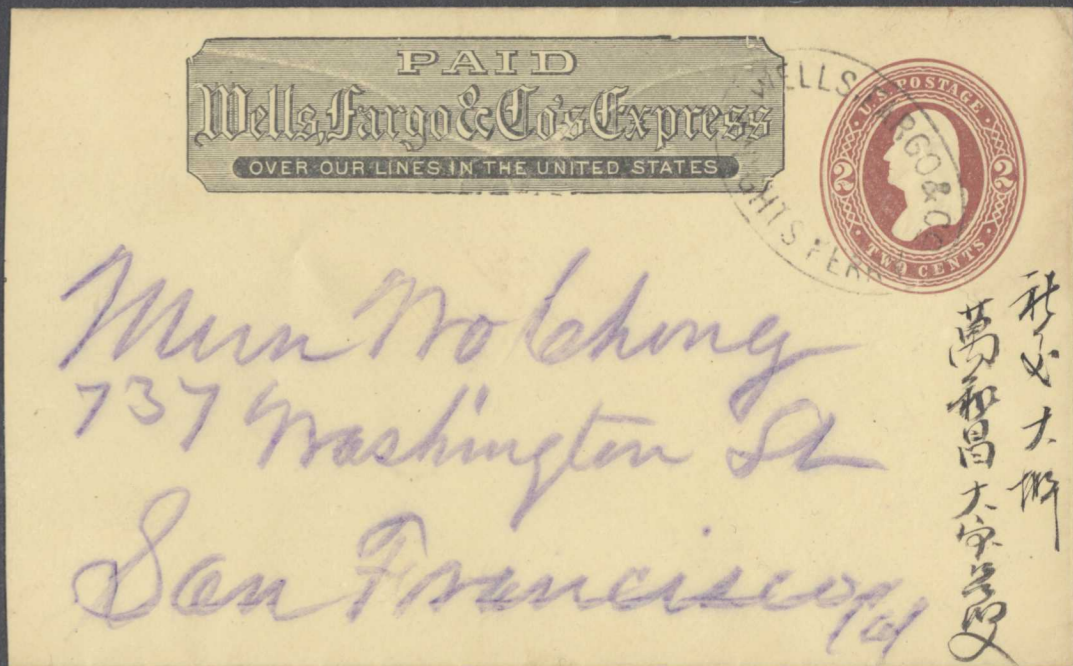 PAID
Wells, Fargo & Co's Express
OVER OUR LINES IN THE UNITED STATES
WELLS FARGO & Co
GHTS FERRY
U.S. POSTAGE
2 2
TWO CENTS
Mun Wo Chong
737 Washington St
San Francisco Cal
大埠
萬和昌大宝号收